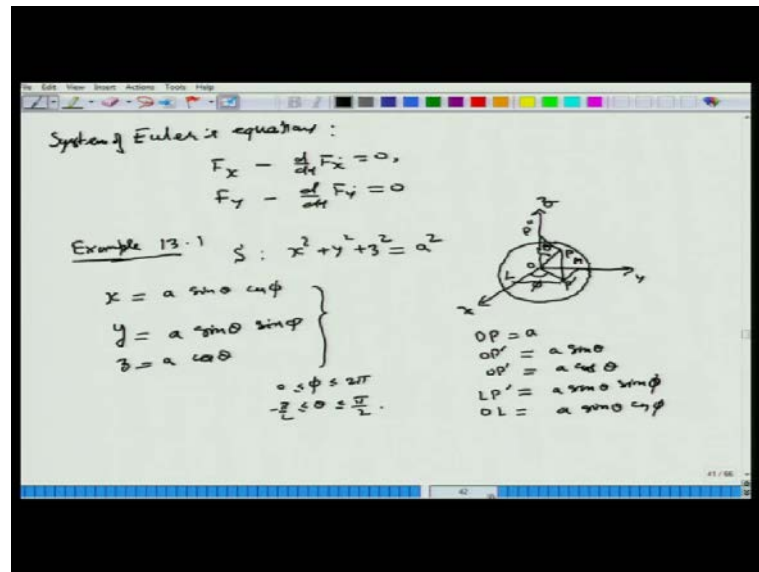 File Edit View Insert Actions Tools Help
System of Euler's equations:
F_x - d/dt F_ẋ = 0,
F_y - d/dt F_ẏ = 0
Example 13.1 S: x² + y² + z² = a²
x = a sinθ cosφ
y = a sinθ sinφ
z = a cosθ
0 ≤ φ ≤ 2π
-π/2 ≤ θ ≤ π/2.
z
P''
θ
P
L O M y
φ P'
x
OP = a
OP' = a sinθ
OP' = a cosθ
LP' = a sinθ sinφ
OL = a sinθ cosφ
41 / 66
42